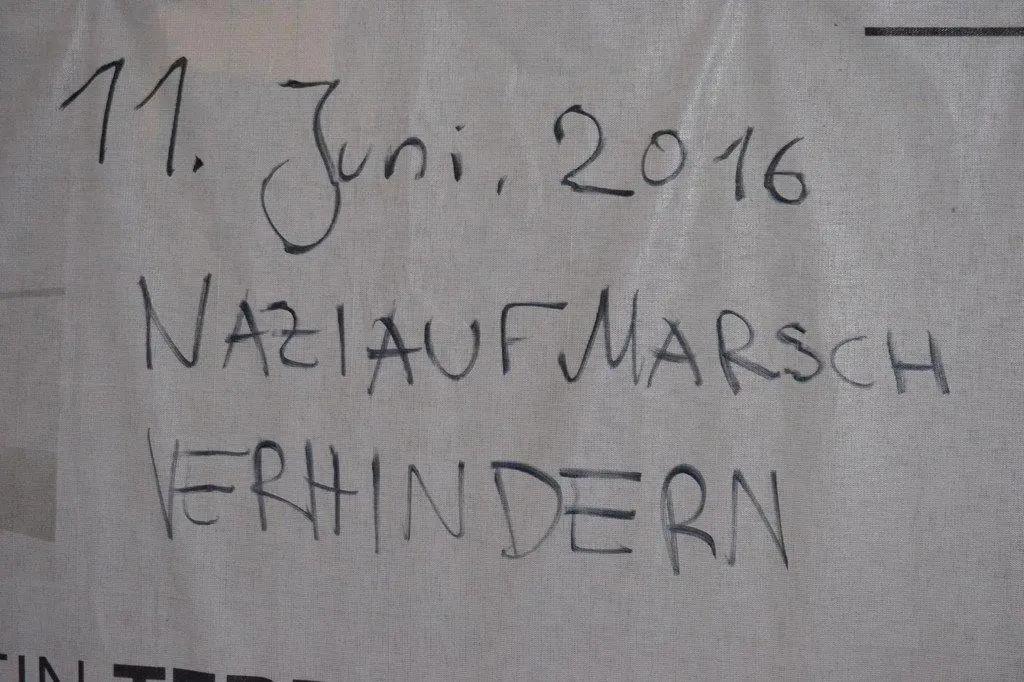 11. Juni, 2016
NAZIAUFMARSCH
VERHINDERN